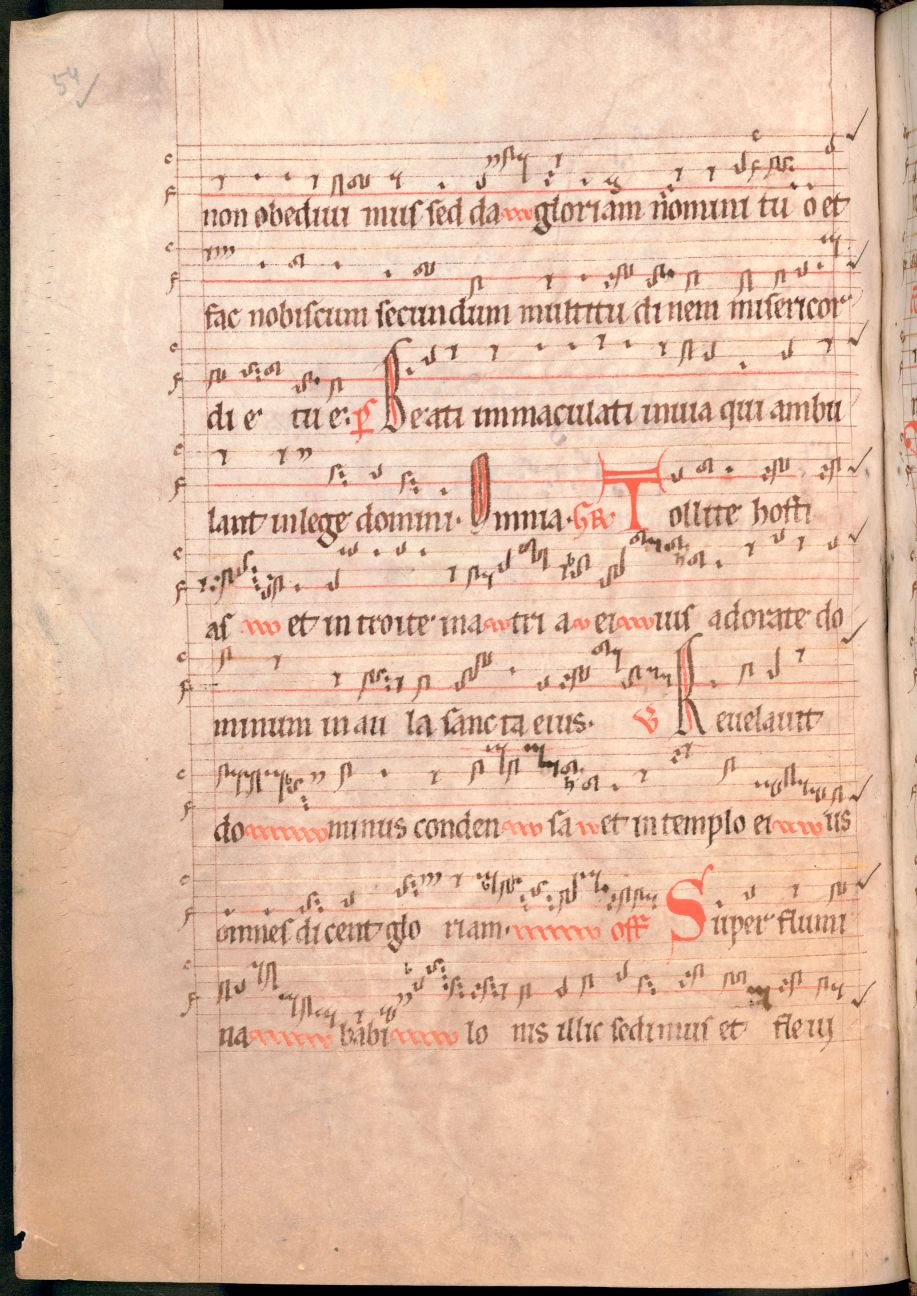 54
non obediui mus sed da gloriam nomini tu o et
fac nobiscum secundum multitu di nem misericor
di e tu e. ps Beati immaculati inuia qui ambu
lant inlege domini. Omnia. GR Tollite hosti
as et in troite ina tri a ei ius adorate do
minum in au la sancta eius. V Reuelauit
do minus conden sa et in templo ei us
omnes dicent glo riam. off Super flumi
na babi lo nis illic sedimus et fleui